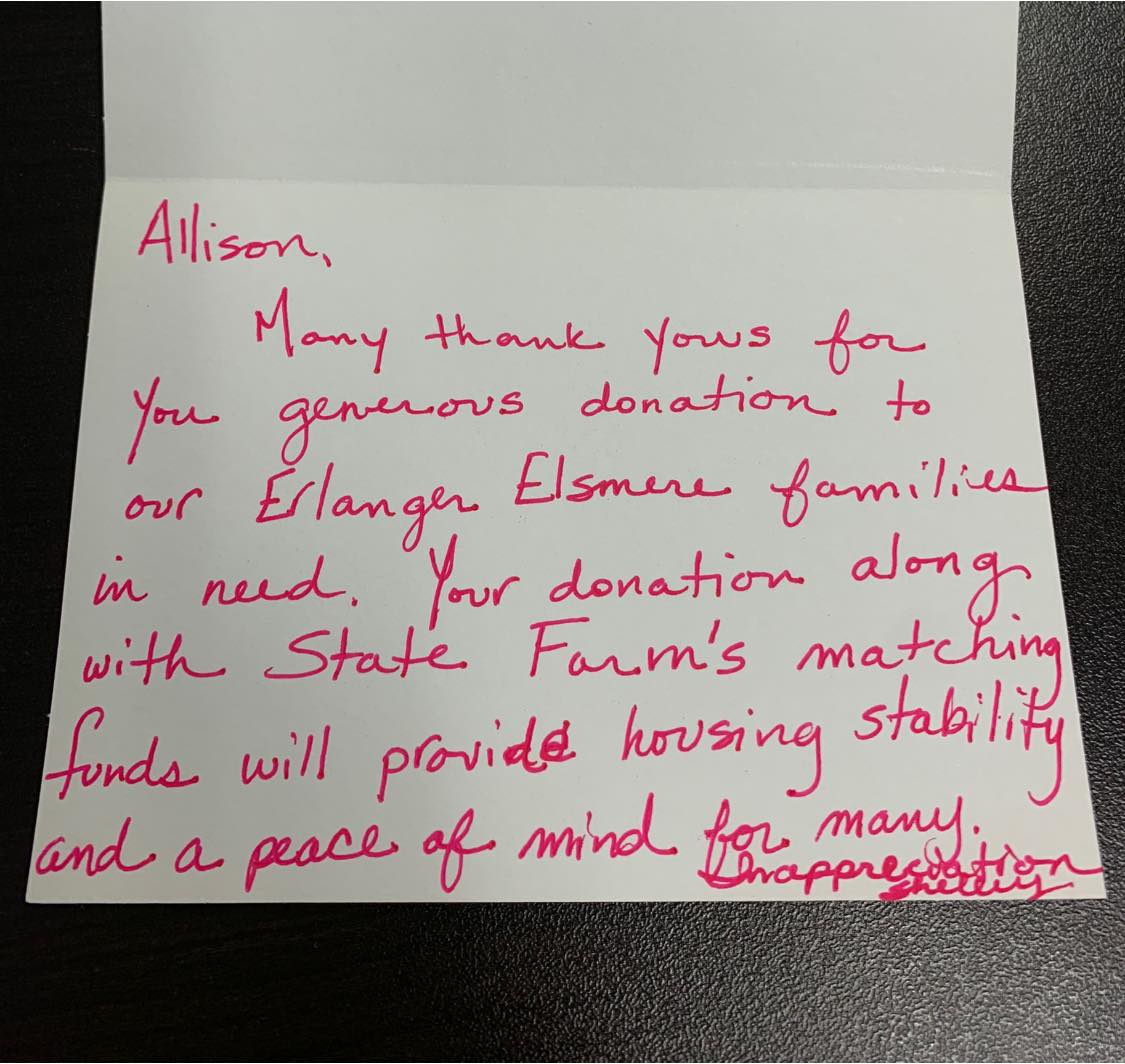 Allison,
Many thank yous for
you generous donation to
our Erlanger Elsmere families
in need. Your donation along
with State Farm's matching
funds will provide housing stability
and a peace of mind for many.
In appreciation
Shelley